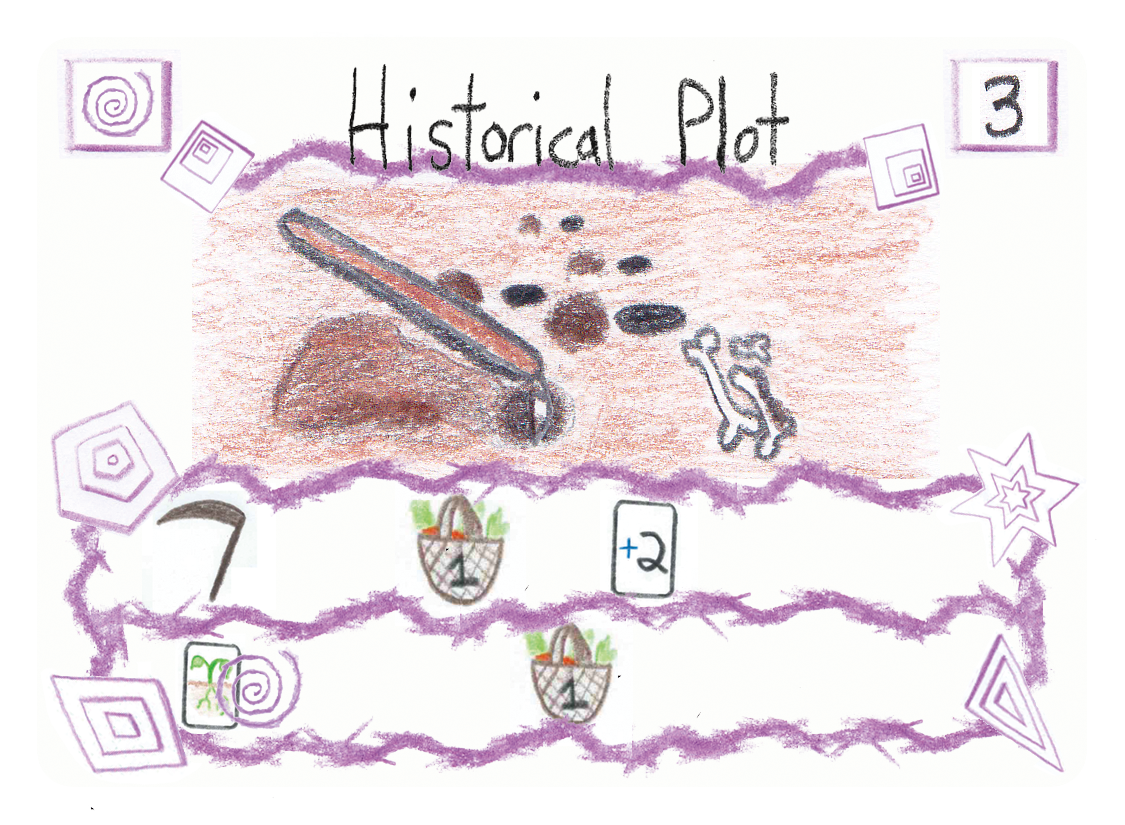 Historical Plot
3
1
+2
1